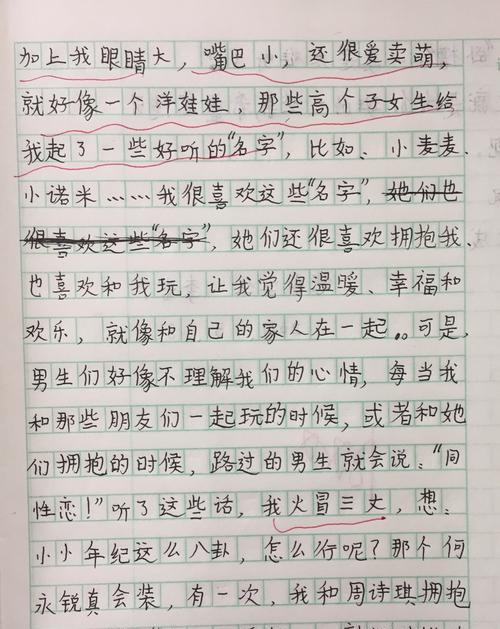 加上我眼睛大，嘴巴小，还很爱卖萌，
就好像一个洋娃娃，那些高个子女生给
我起了一些好听的“名字”，比如、小麦麦、
小诺米……我很喜欢这些“名字”，她们也
很喜欢这些“名字”，她们还很喜欢拥抱我、
也喜欢和我玩，让我觉得温暖、幸福和
欢乐，就像和自己的家人在一起。。可是，
男生们好像不理解我们的心情，每当我
和那些朋友们一起玩的时候，或者和她
们拥抱的时候，路过的男生就会说：“同
性恋！”听了这些话，我火冒三丈，想：
小小年纪这么八卦，怎么行呢？那个何
永锐真会装，有一次，我和周诗琪拥抱